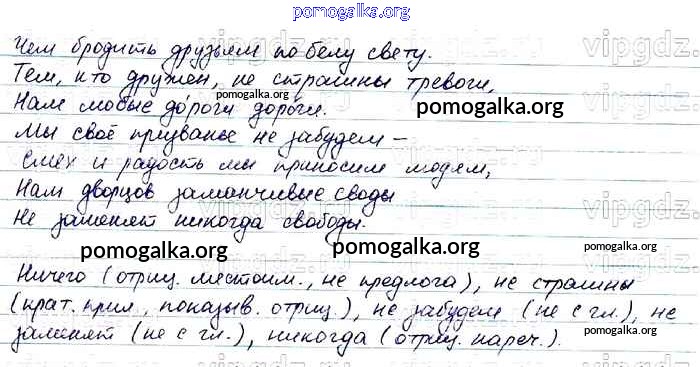 pomogalka.org
Чем бродить друзьям по белу свету.
Тем, кто дружен, не страшны тревоги,
Нам любые дороги дороги.
pomogalka.org
Мы своё призванье не забудем –
Смех и радость мы приносим людям,
pomogalka.org
Нам дворцов заманчивые своды
Не заменят никогда свободы.
pomogalka.org pomogalka.org pomogalka.org
Ничего (отриц. местоим., не предлога), не страшны
(крат. прил., показыв. отриц.), не забудем (не с гл.), не
заменят (не с гл.), никогда (отриц. нареч.).
pomogalka.org
vipgdz.